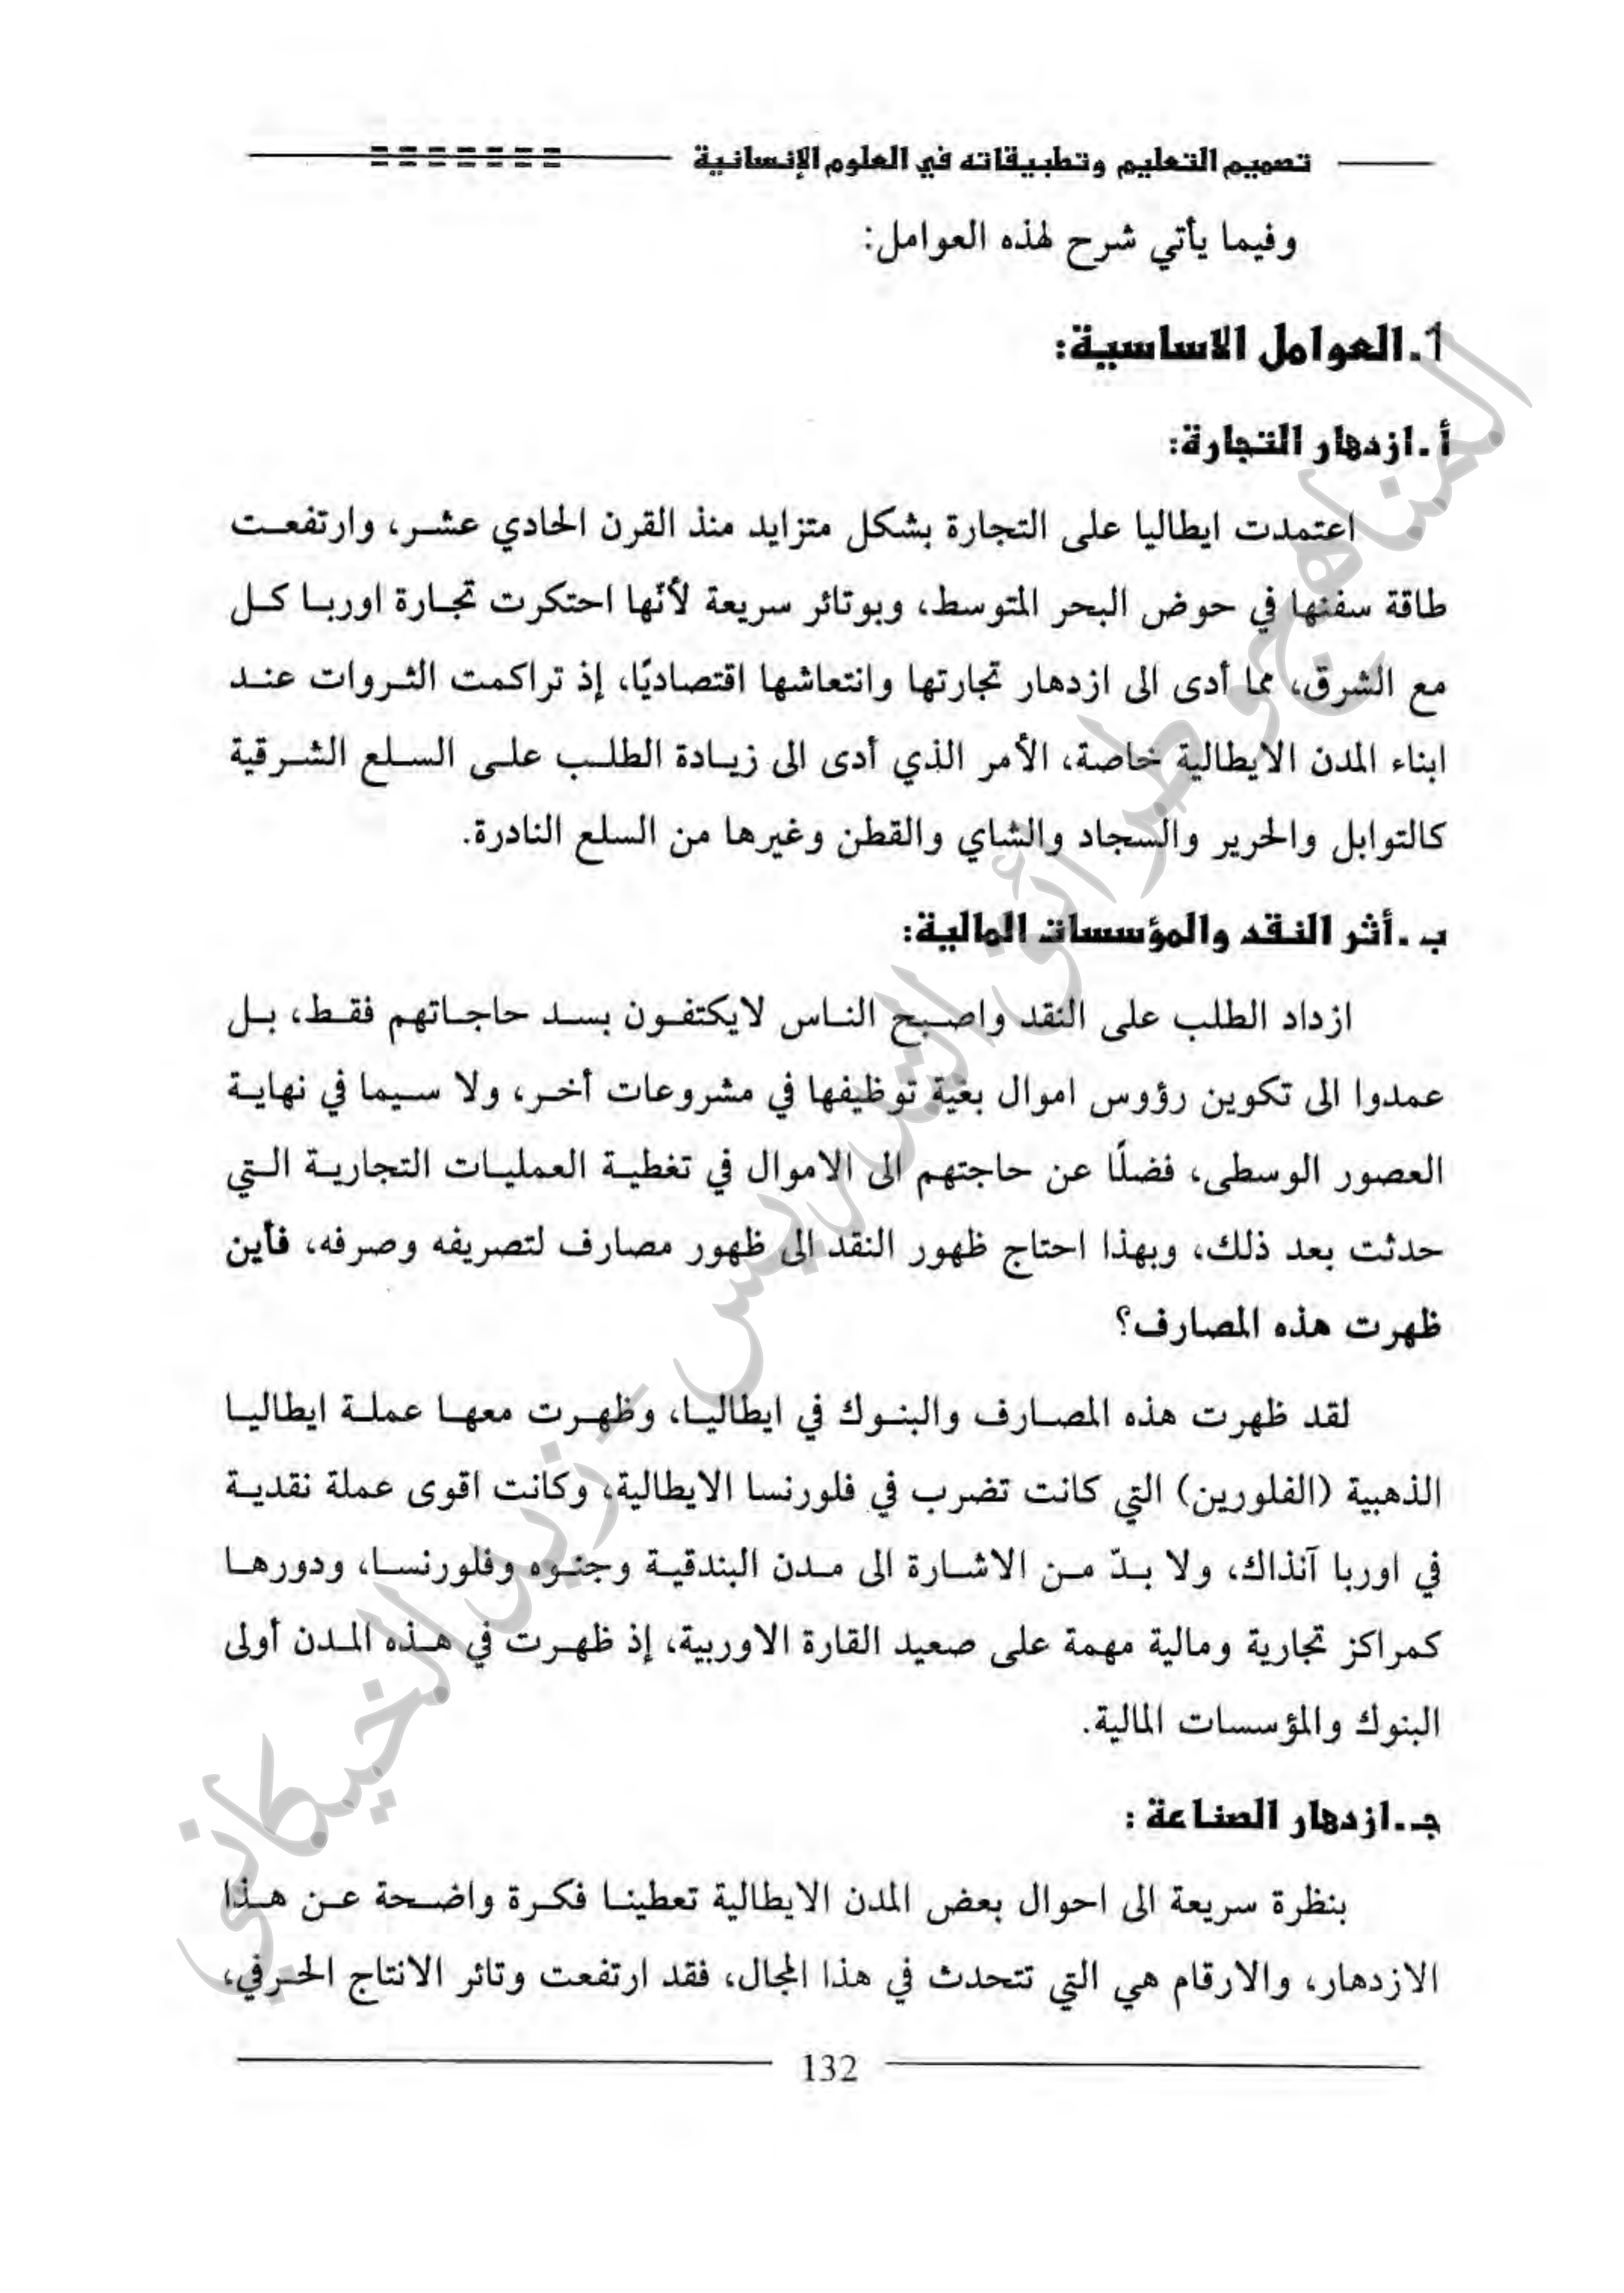 تصميم التعليم وتطبيقاته في العلوم الإنسانية
وفيما يأتي شرح لهذه العوامل:
1.العوامل الاساسية:
أ.ازدهار التجارة:
اعتمدت ايطاليا على التجارة بشكل متزايد منذ القرن الحادي عشر، وارتفعت
طاقة سفنها في حوض البحر المتوسط، وبوتائر سريعة لأنّها احتكرت تجارة اوربا كل
مع الشرق، مما أدى الى ازدهار تجارتها وانتعاشها اقتصاديًا، إذ تراكمت الثروات عند
ابناء المدن الايطالية خاصة، الأمر الذي أدى الى زيادة الطلب على السلع الشرقية
كالتوابل والحرير والسجاد والشاي والقطن وغيرها من السلع النادرة.
ب.أثر النقد والمؤسسات المالية:
ازداد الطلب على النقد واصبح الناس لايكتفون بسد حاجاتهم فقط، بل
عمدوا الى تكوين رؤوس اموال بغية توظيفها في مشروعات أخر، ولا سيما في نهاية
العصور الوسطى، فضلًا عن حاجتهم الى الاموال في تغطية العمليات التجارية التي
حدثت بعد ذلك، وبهذا احتاج ظهور النقد الى ظهور مصارف لتصريفه وصرفه، فأين
ظهرت هذه المصارف؟
لقد ظهرت هذه المصارف والبنوك في ايطاليا، وظهرت معها عملة ايطاليا
الذهبية (الفلورين) التي كانت تضرب في فلورنسا الايطالية، وكانت اقوى عملة نقدية
في اوربا آنذاك، ولا بدّ من الاشارة الى مدن البندقية وجنوه وفلورنسا، ودورها
كمراكز تجارية ومالية مهمة على صعيد القارة الاوربية، إذ ظهرت في هذه المدن أولى
البنوك والمؤسسات المالية.
جـ.ازدهار الصناعة :
بنظرة سريعة الى احوال بعض المدن الايطالية تعطينا فكرة واضحة عن هذا
الازدهار، والارقام هي التي تتحدث في هذا المجال، فقد ارتفعت وتائر الانتاج الحرفي،
132
المناهج وطرائق التدريس - زيد الخيكاني